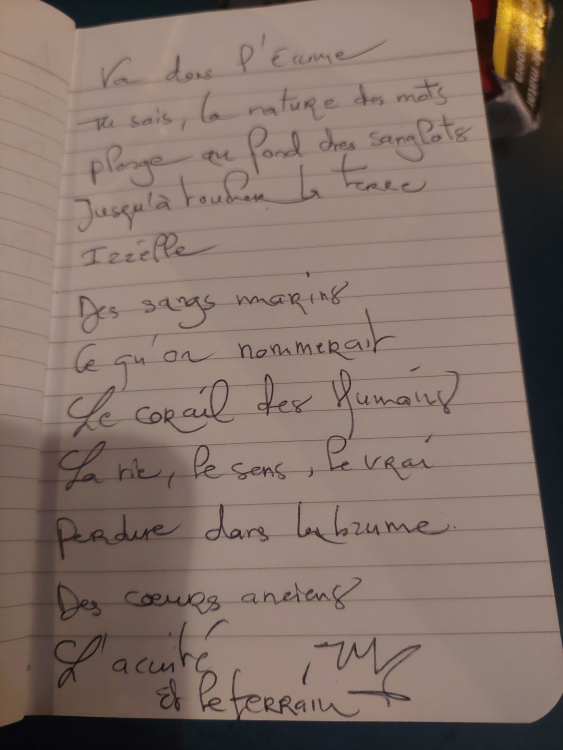 Va dans l'Écume
Tu sais, la nature des mots
plonge au fond des sanglots
Jusqu'à toucher la terre
Des sangs marins
Ce qu'on nommerait
Le corail des Humains
La vie, le sens, le vrai
Perdure dans la brume.
Des cœurs anciens
L'acuité
Et le terrain